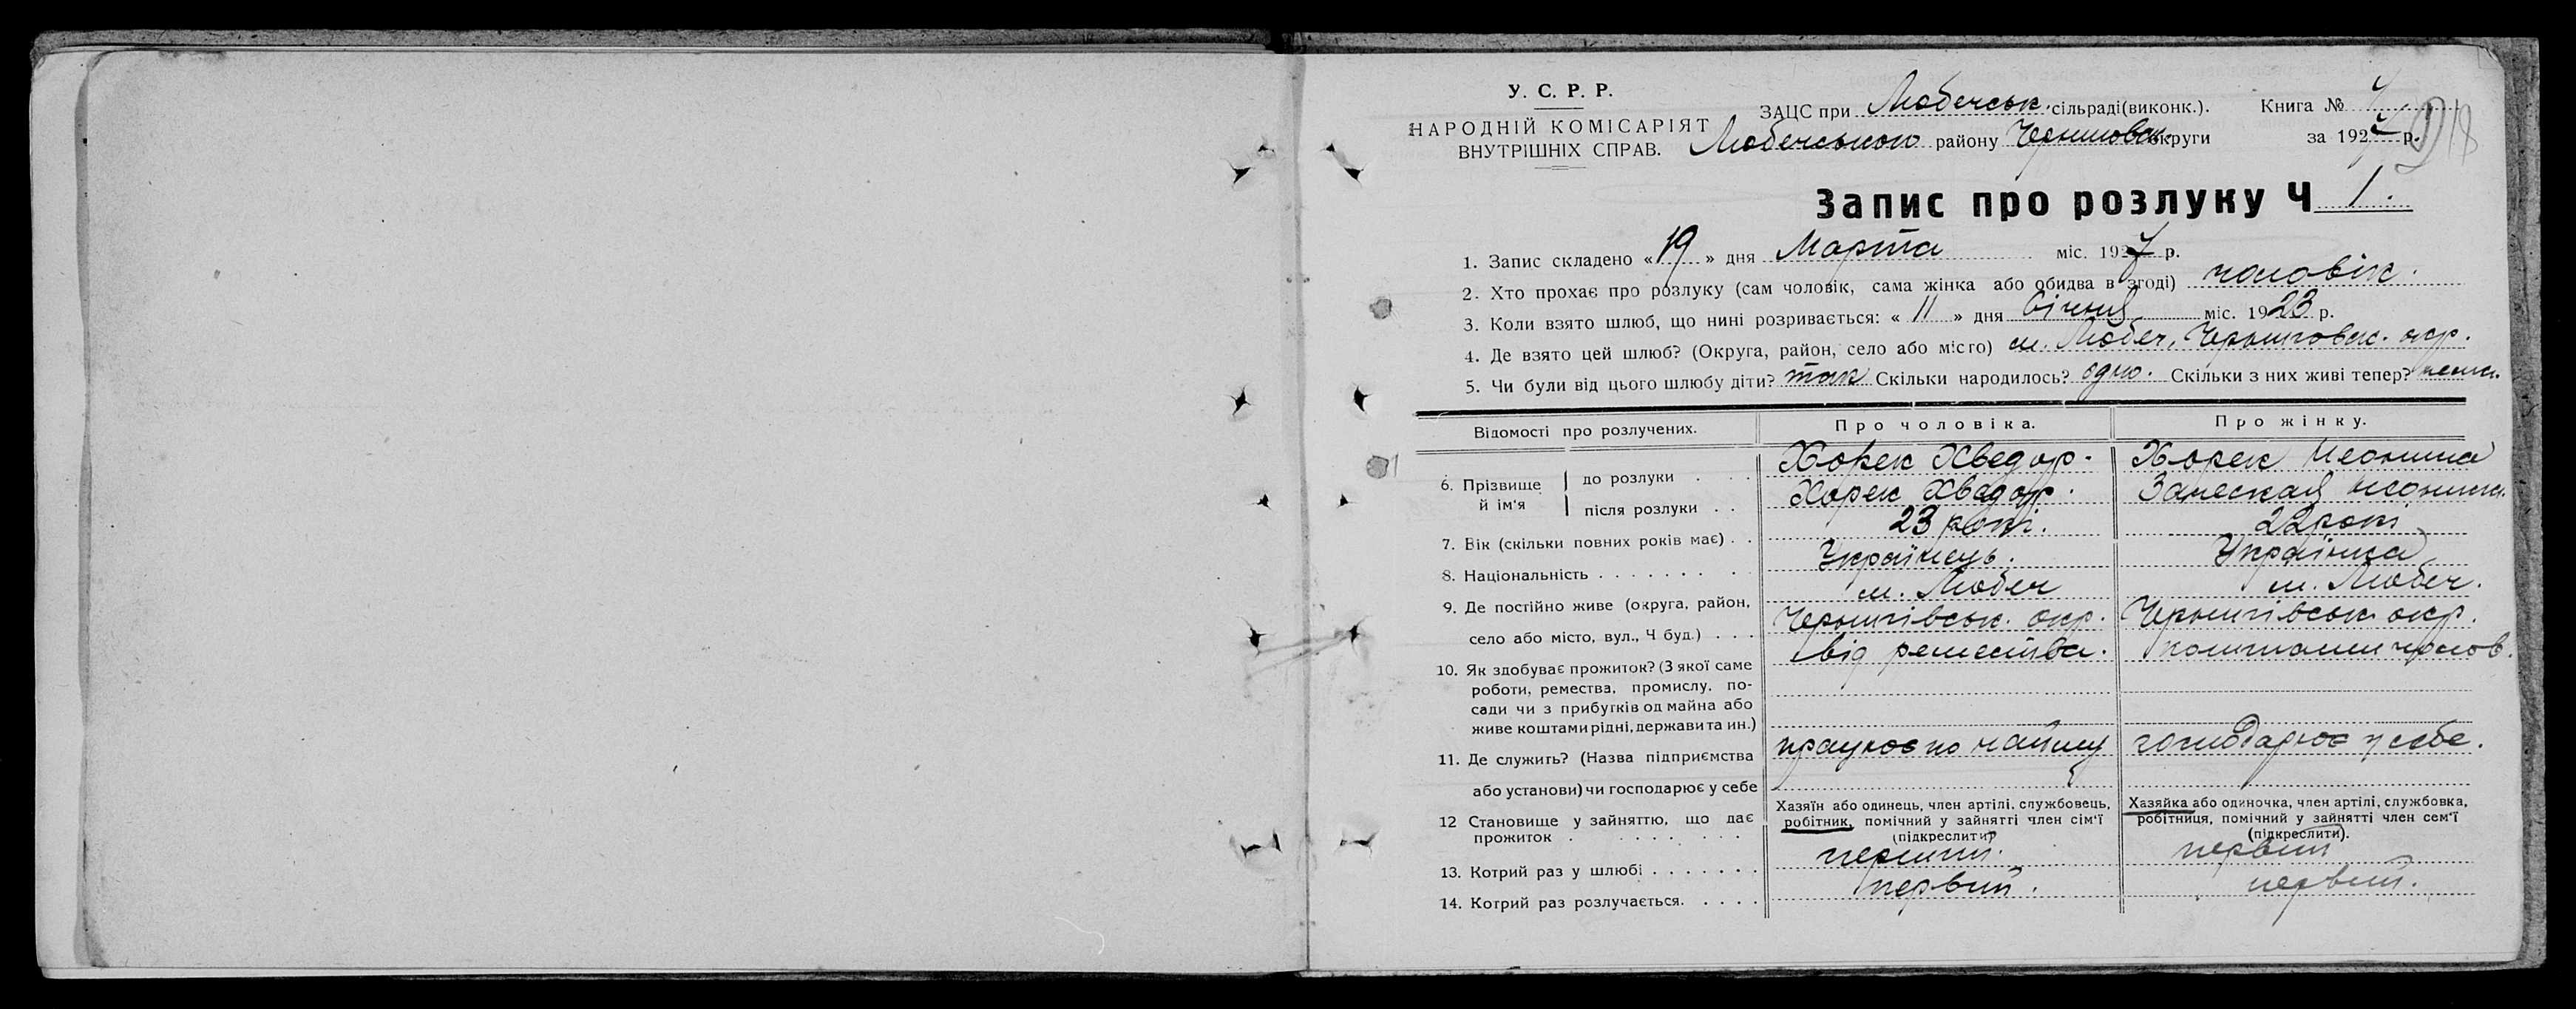 У. С. Р. Р.
НАРОДНІЙ КОМІСАРІЯТ
ВНУТРІШНІХ СПРАВ.
ЗАЦС при Любечськ. сільраді (виконк.).
Любечського району Черниговськ. округи
Книга №
за 1927 р.
Запис про розлуку Ч 1.
1. Запис складено «19» дня Марта міс. 1927 р.
2. Хто прохає про розлуку (сам чоловік, сама жінка або обидва в згоді) чоловік.
3. Коли взято шлюб, що нині розривається: «11» дня Січня міс. 1923 р.
4. Де взято цей шлюб? (Округа, район, село або місто) м. Любеч, Черниговск. окр.
5. Чи були від цього шлюбу діти? так Скільки народилось? одно. Скільки з них живі тепер? нема.
Відомості про розлучених. Про чоловіка. Про жінку.
6. Прізвище й ім'я до розлуки . . . Хорек Хведор. Хорек
після розлуки . . Хорек Хведор.
7. Вік (скільки повних років має) . . 23 рокі. 22 рокі
8. Національність . . . . . . . . . Українець. Українка
9. Де постійно живе (округа, район, м. Любеч м. Любеч.
село або місто, вул., Ч буд.) . . . Чернигівськ. окр. Чернигівськ. окр.
10. Як здобуває прожиток? (З якої саме від ремества.
роботи, ремества, промислу, по-
сади чи з прибутків од майна або
живе коштами рідні, держави та ин.)
11. Де служить? (Назва підприємства працює по найму господарює у себе.
або установи) чи господарює у себе
12 Становище у зайняттю, що дає прожиток . . . . . .
Хазяїн або одинець, член артілі, службовець,
робітник, помічний у зайнятті член сім'ї
(підкреслити)
Хазяйка або одиночка, член артілі, службовка,
робітниця, помічний у зайнятті член сем'ї
(підкреслити).
13. Котрий раз у шлюбі . . . . . . . первий
14. Котрий раз розлучається. . . . . первий. первий.